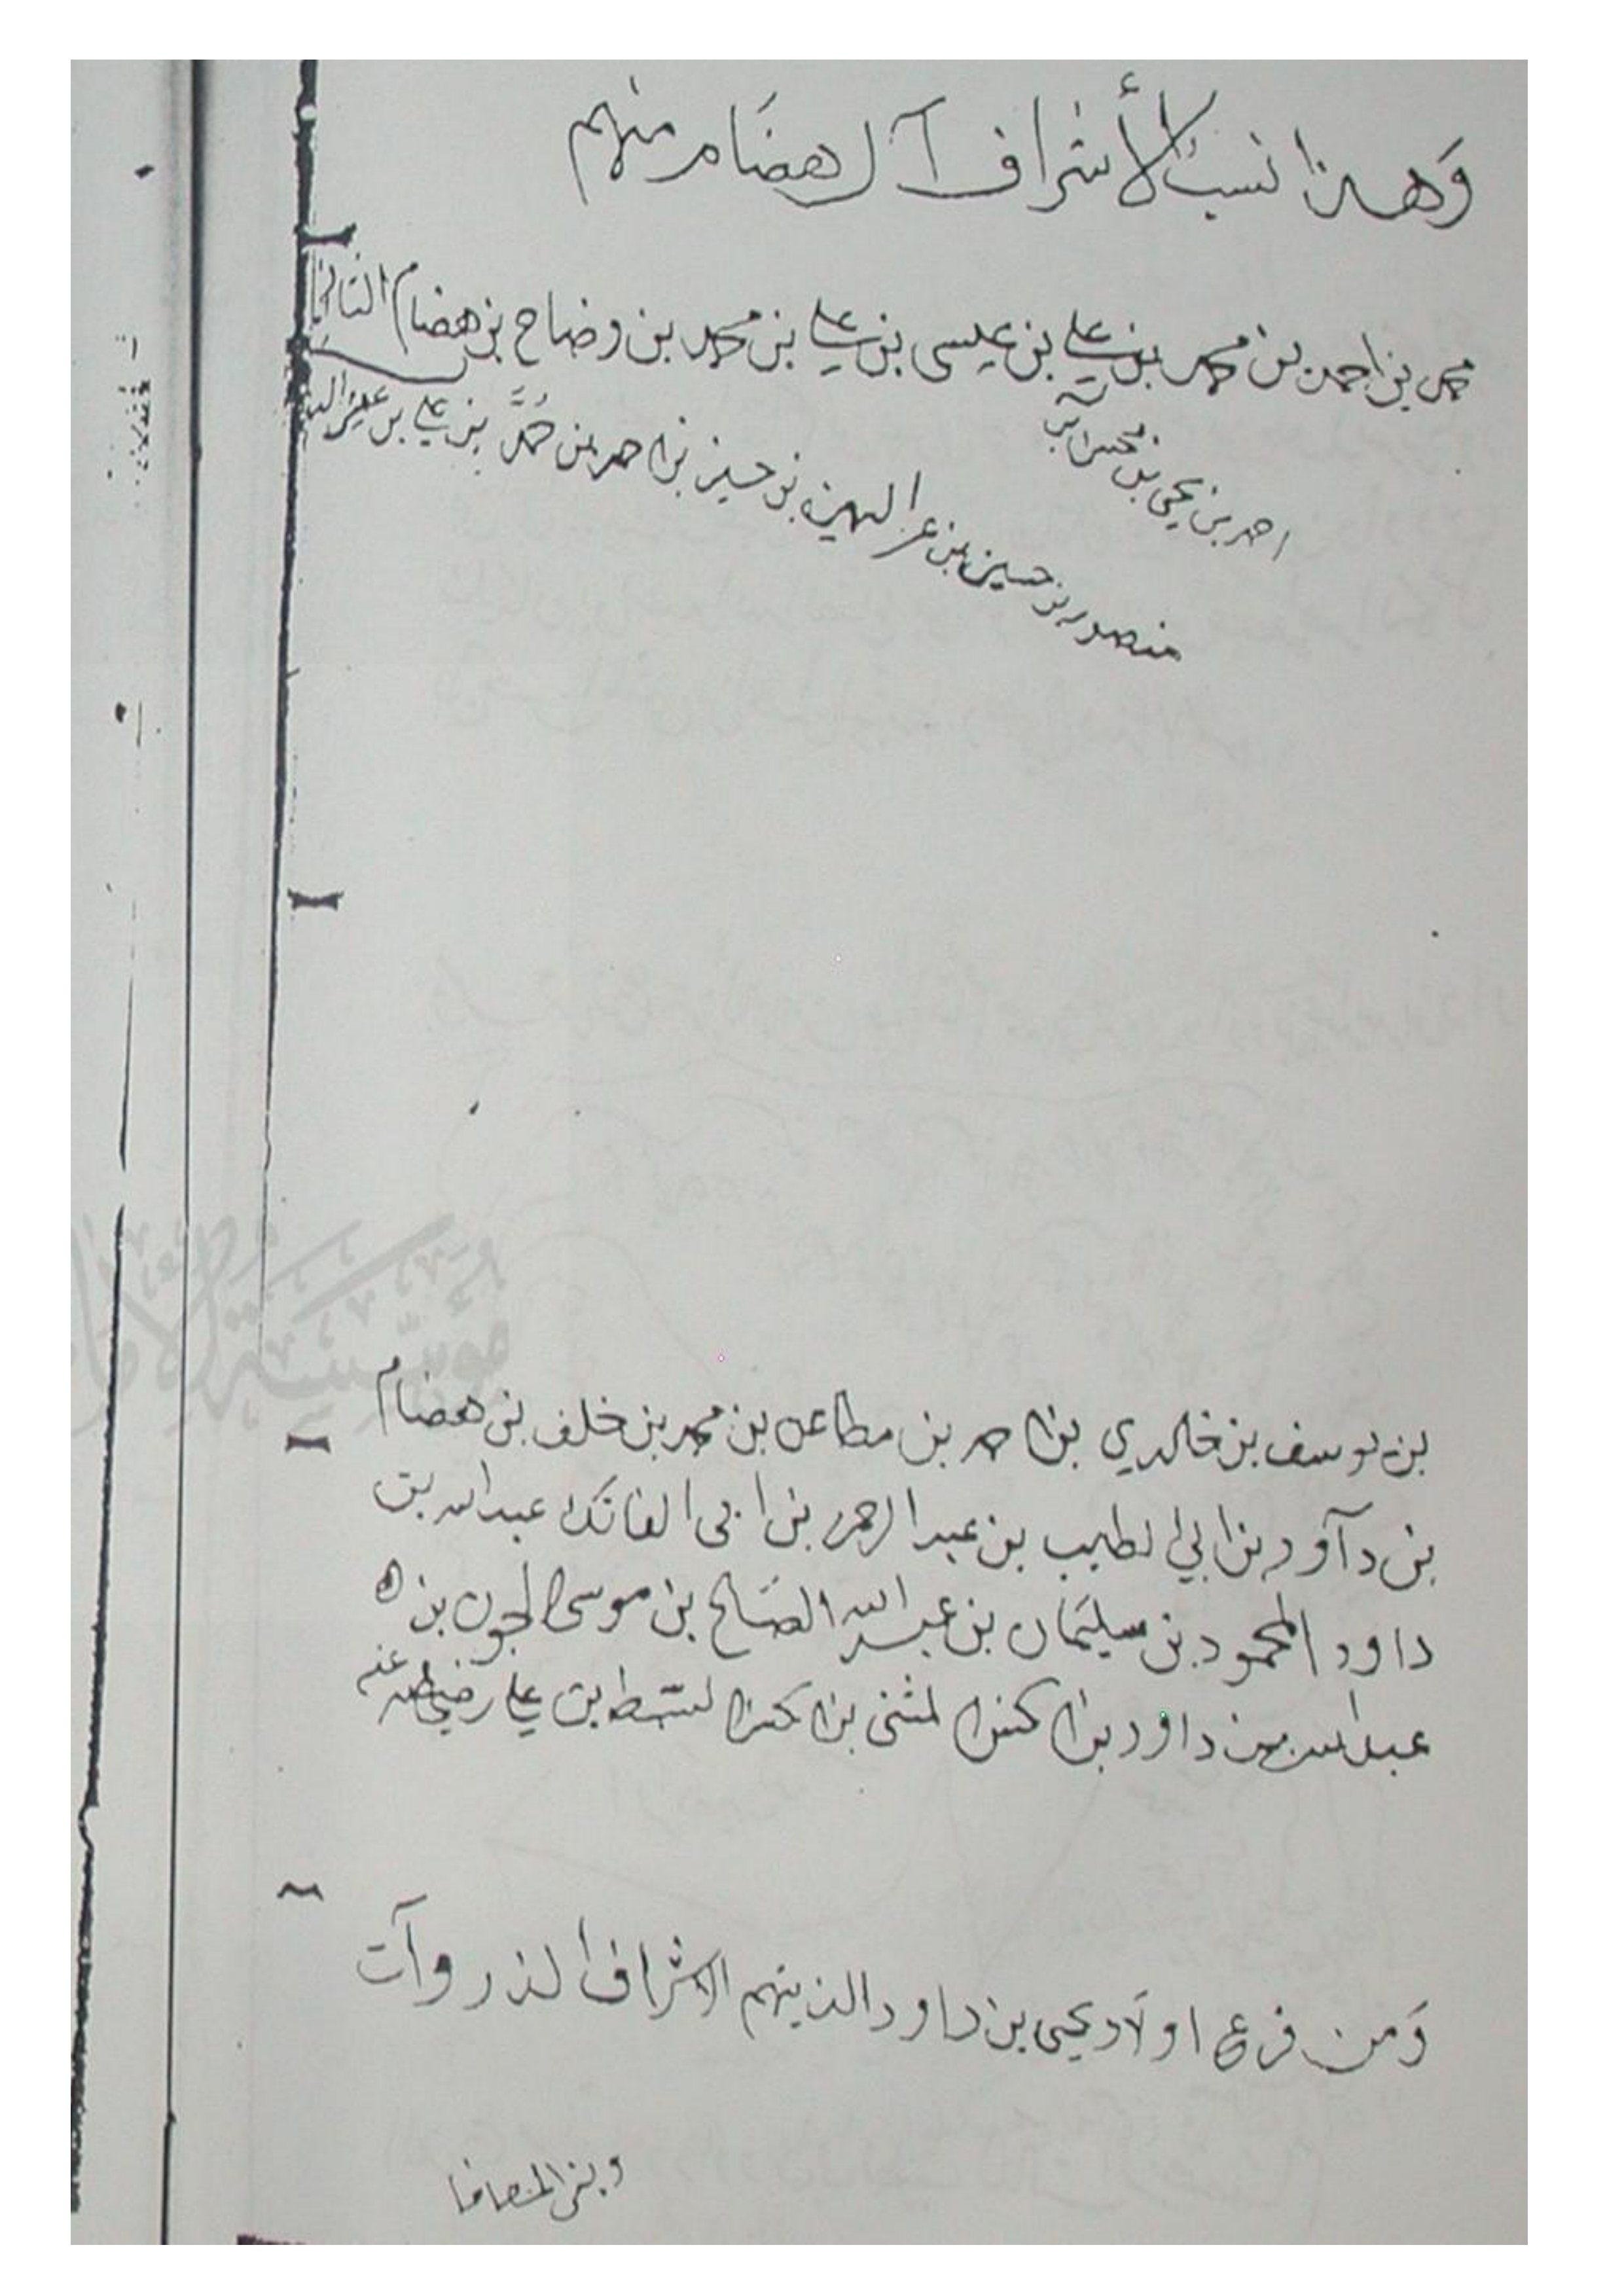 وَهذا نسب الأشراف آل هضَام منهم
محمد بن احمد بن محمد بن علي بن عيسى بن علي بن محمد بن وضاح بن هضام الثاني
احمد بن يحيى بن محسن
منصور بن حسين بن عز الدين بن حسين بن احمد بن حمد بن علي بن
مؤسسة الإمام
بن يوسف بن خالدي بن احمد بن مطاعن بن محمد بن خلف بن هضام
بن دآود بن ابي الطيب بن عبد الرحمن بن ابي الفاتك عبد الله بن
داود المحمود بن سليمان بن عبد الله الصالح بن موسى الجون بن
عبد الله بن داود بن الحسن المثنى بن الحسن السبط بن علي رضي الله عنه
وَمن فرع اولَاد يحيى بن داود الذينهم الاشراف الذروآت
وبني